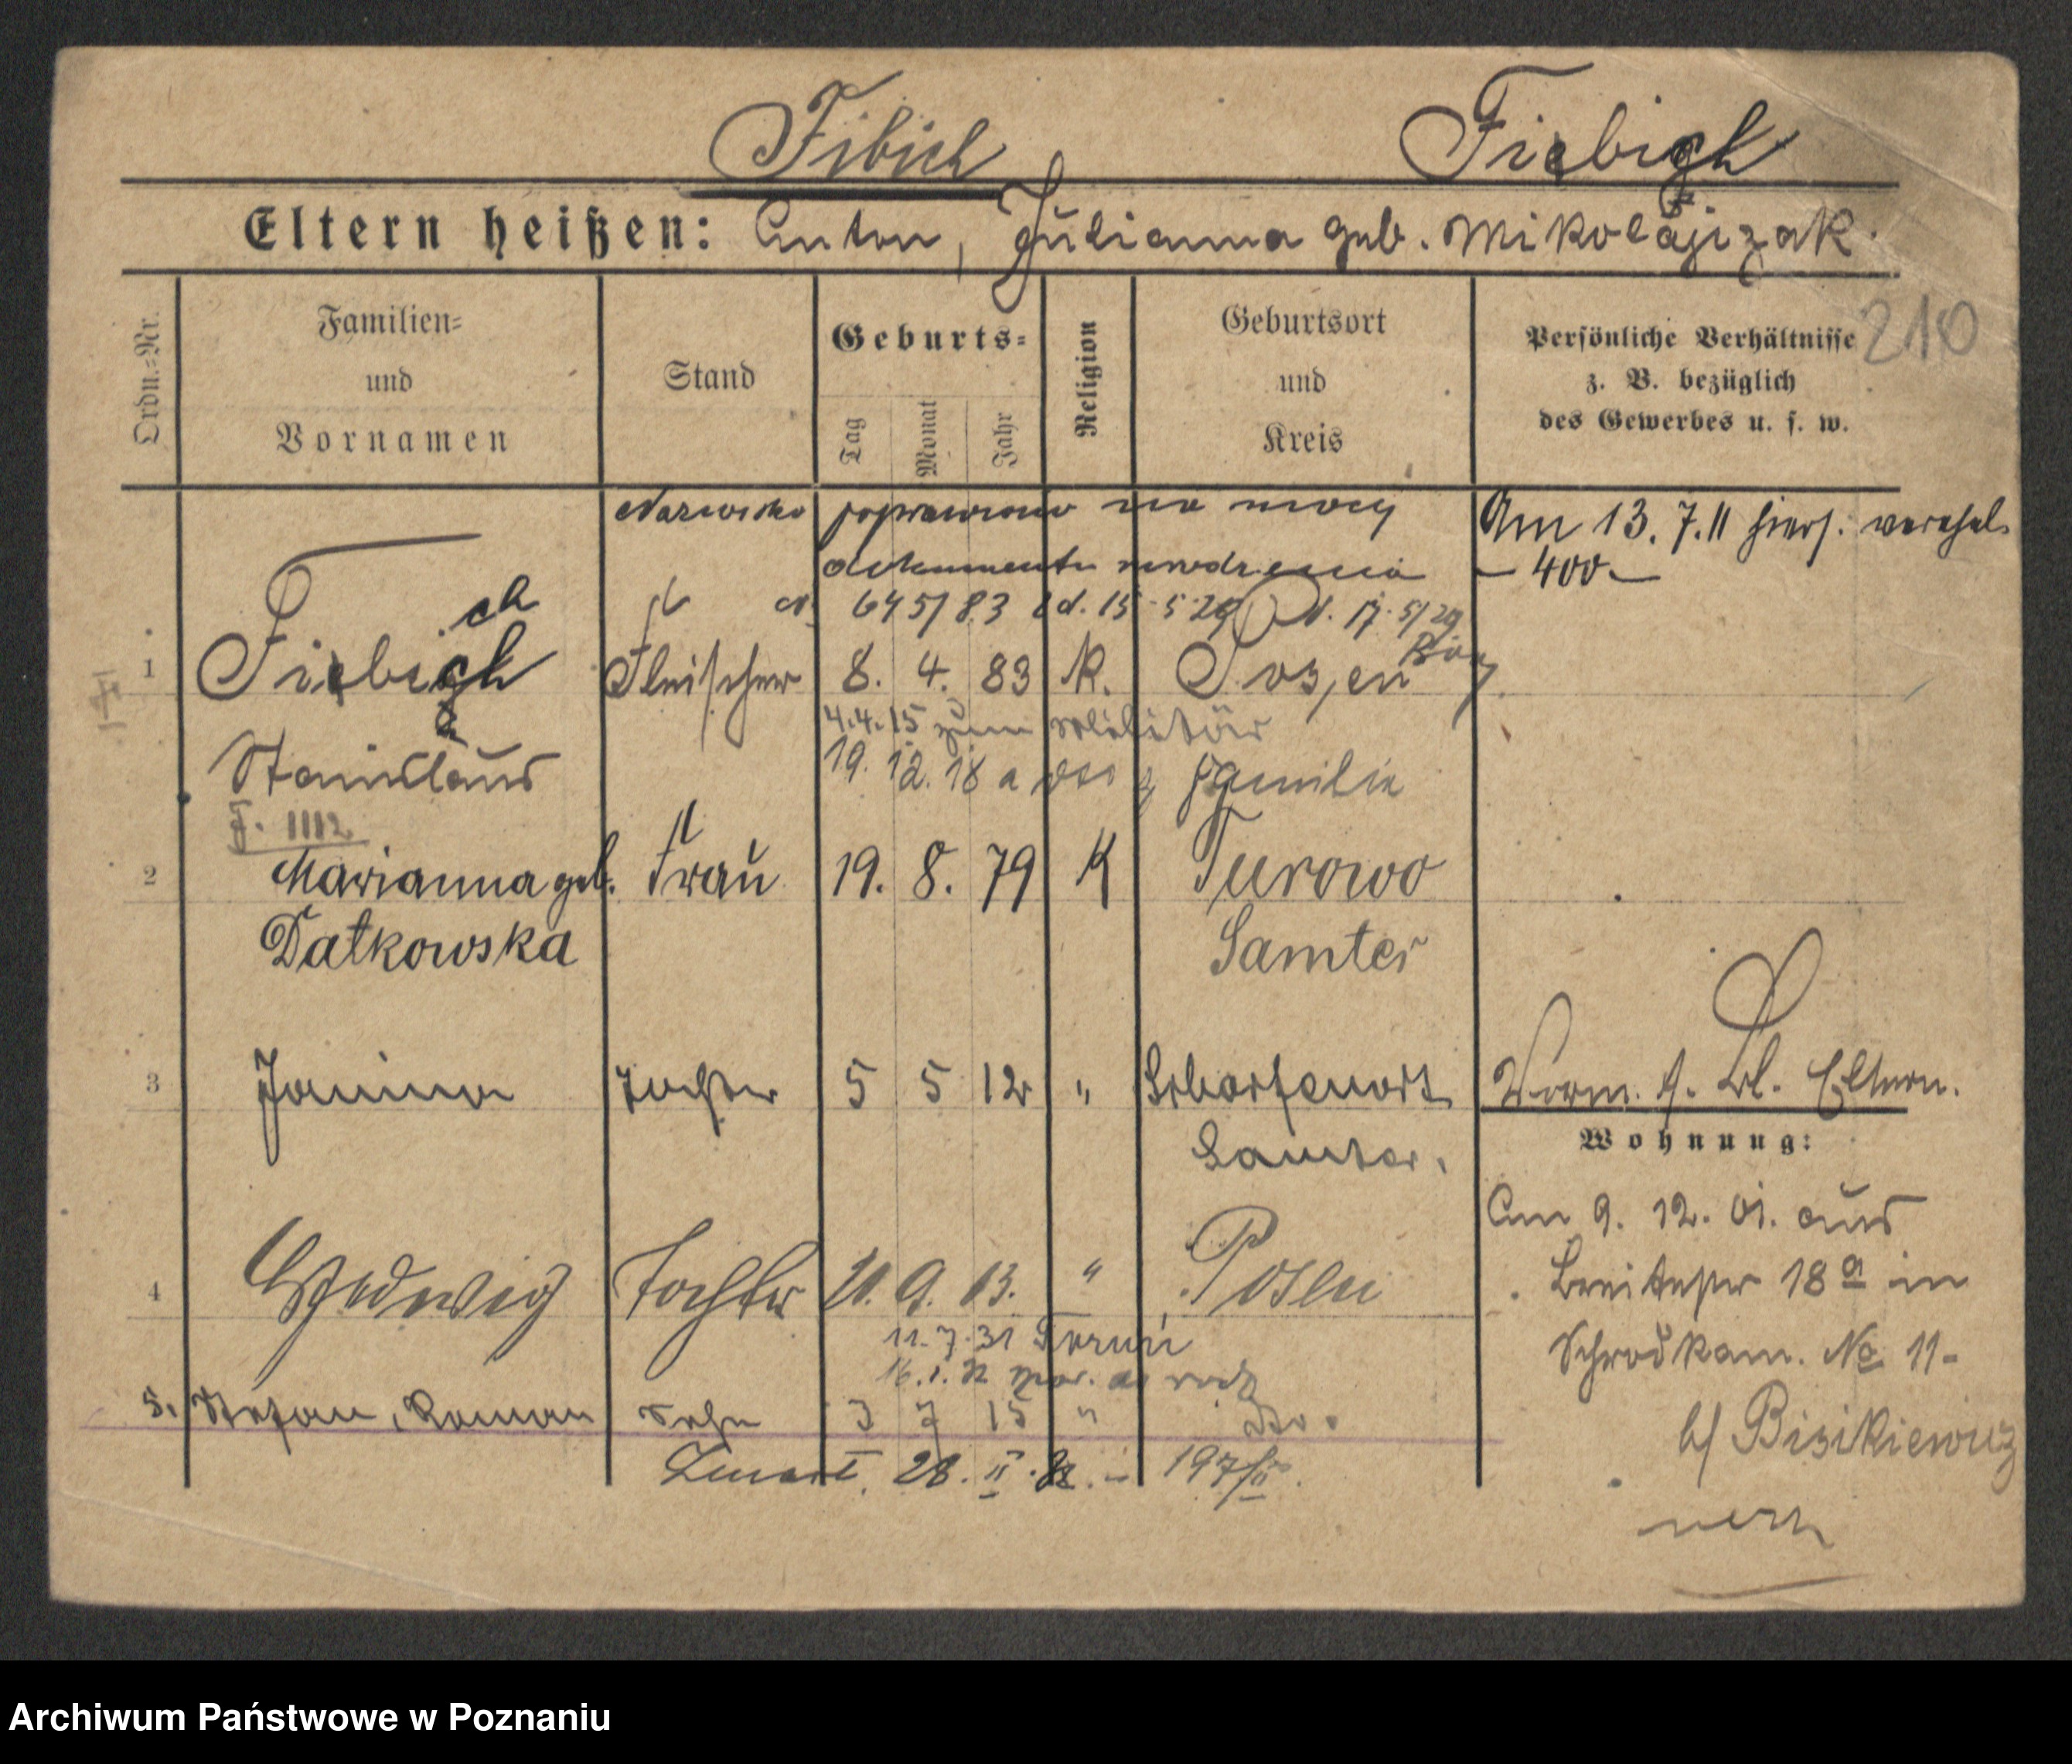 Fibich Fiebich
Eltern heißen: Anton, Julianna geb. Mikolajczak.
Ordn.-Nr.
Familien-
und
Vornamen
Stand
Geburts-
Tag
Monat
Jahr
Religion
Geburtsort
und
Kreis
Persönliche Verhältnisse
z. B. bezüglich
des Gewerbes u. s. w.
210
Nazwisko poprawiono na mocy
dokumentu urodzenia
N 645/83 d. 15.5.29 d. 17.5/29
Am 13. 7. 11 hiers. verehel.
- 400 -
1 Fiebich Fleischer 8. 4. 83 K. Posen
ch
4.4.15 zum Militär
Stanislaus 19. 12. 18 a z Familie
F. 1112
2 Marianna geb. Frau 19. 8. 79 K Turowo
Datkowska Samter
3 Janina Tochter 5 5 12 " Scharfenort
Samter.
Eltern.
Wohnung:
Am 9. 12. 01. aus
Breitestr 18a in
Schrodkam. No 11-
b/ Bizikiewicz
verz
4 Hedwig Tochter 21. 9. 13. " Posen
11.7.31 Toruń
5. Stefan, Roman Sohn 3 7 15 " do.
Zmarł 28. II.